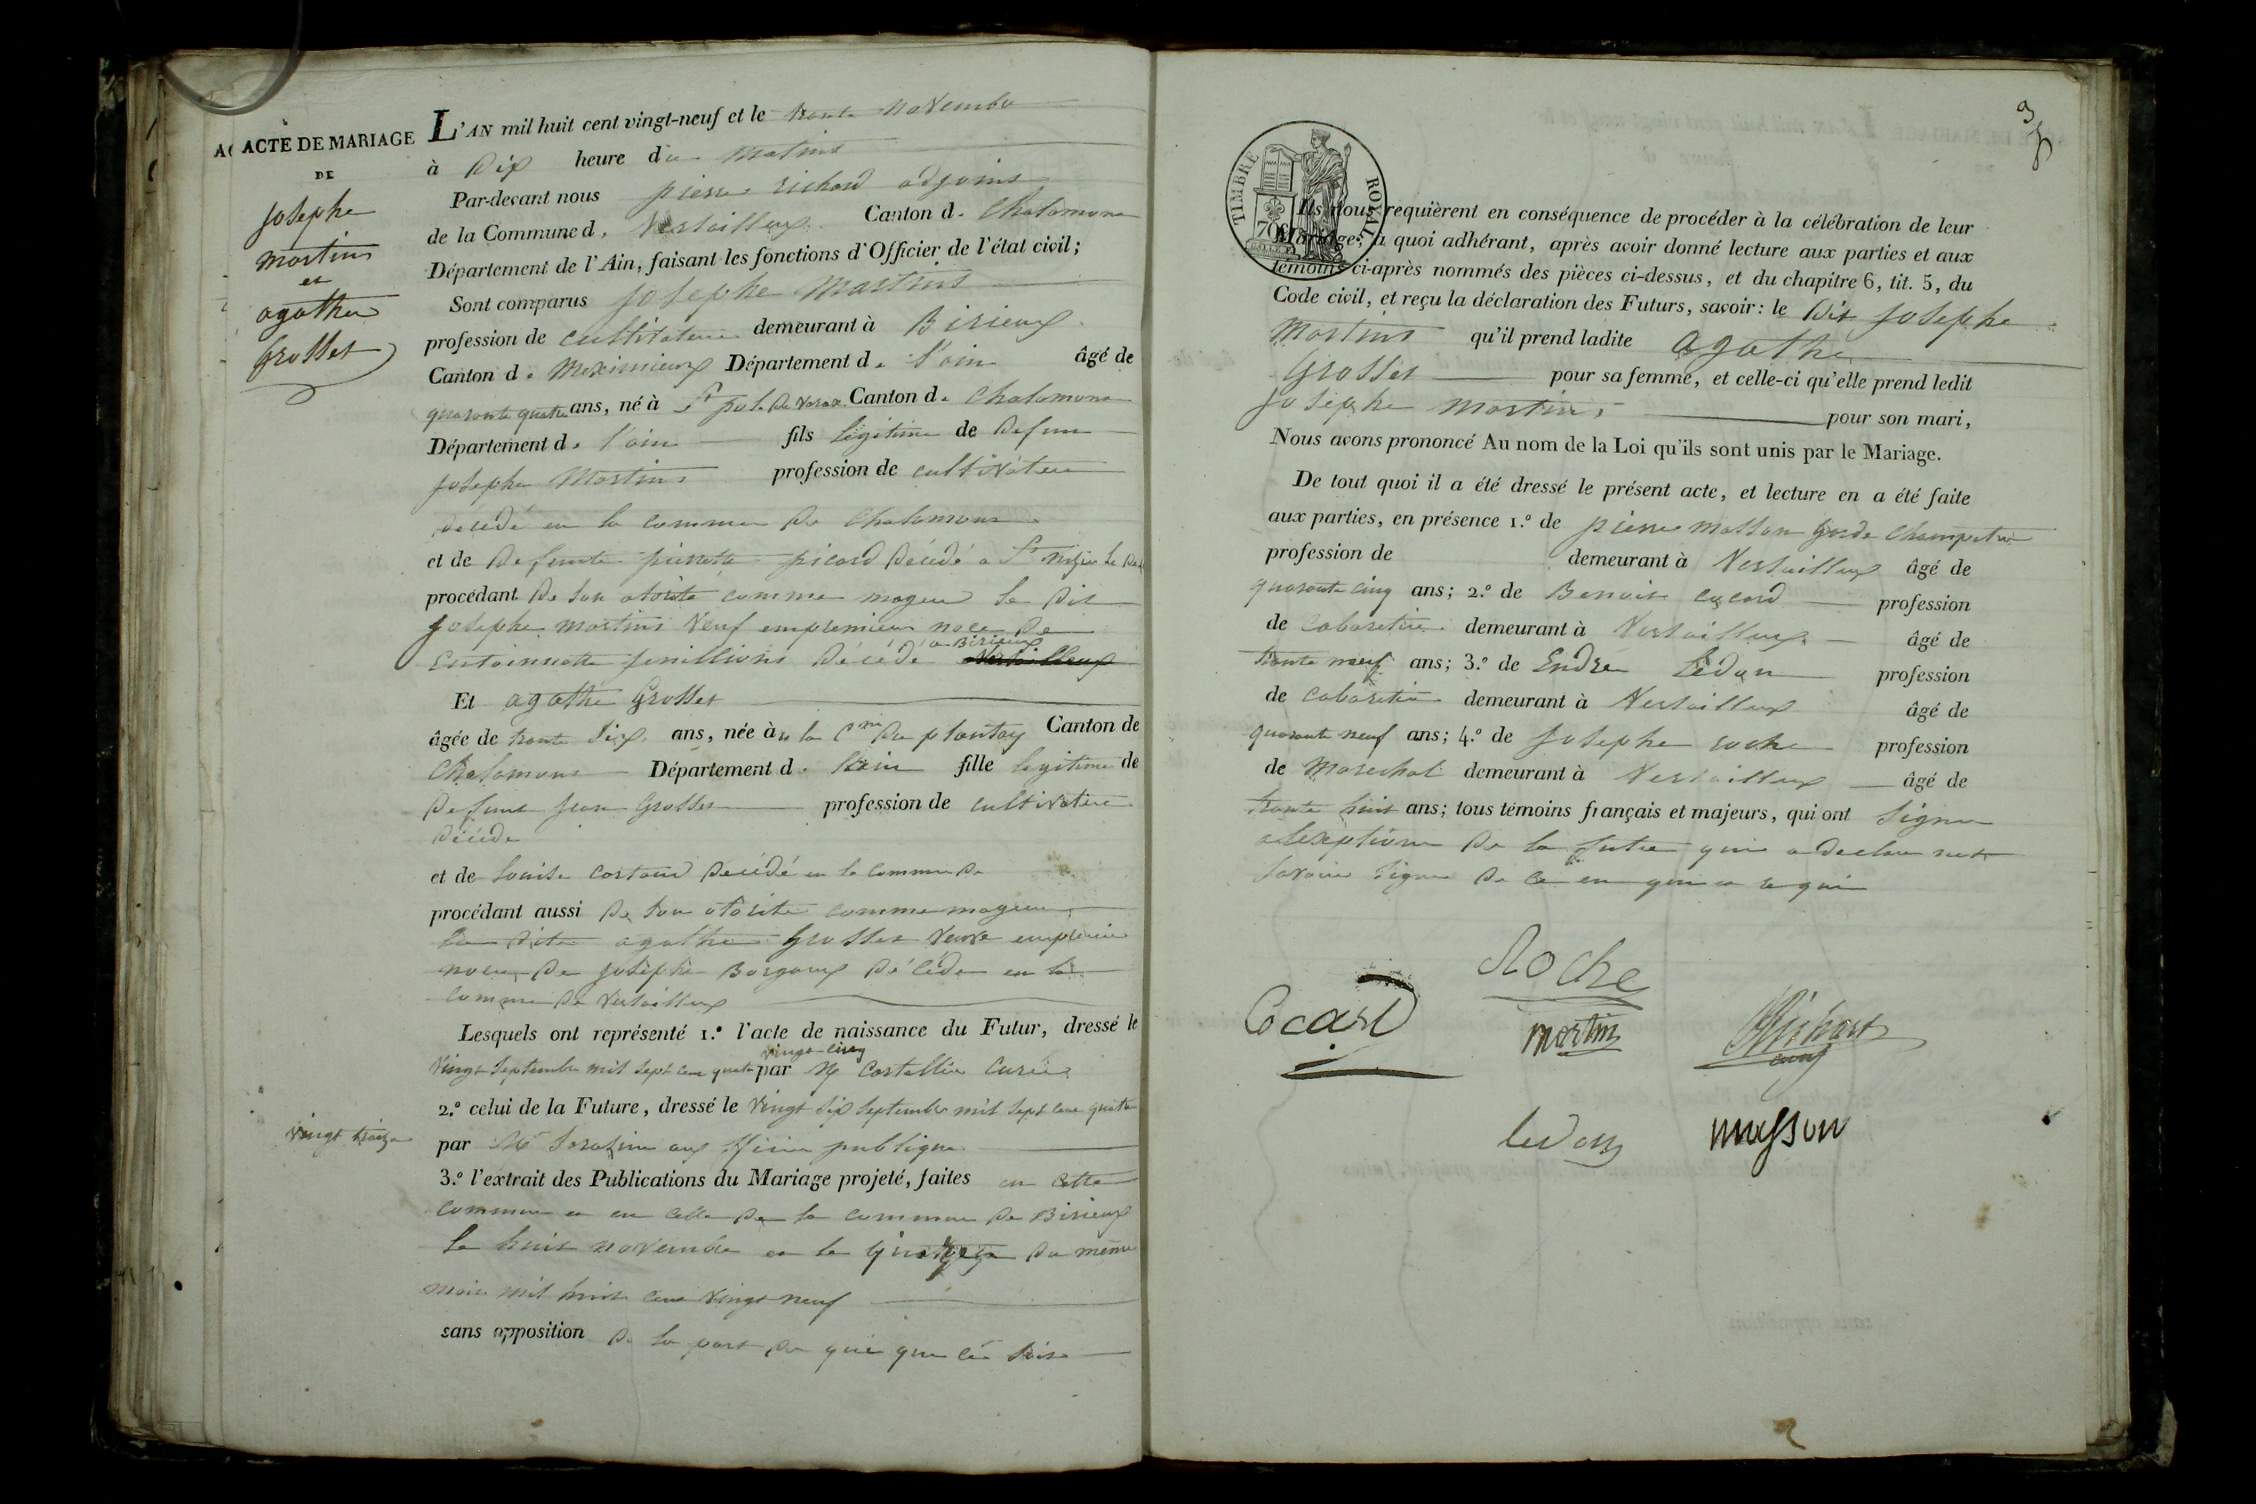 ACTE DE MARIAGE
DE
Josephe
martins
et
agathe
Grosset
L'AN mil huit cent vingt-neuf et le trente novembre
à Dix heure du matins
Par-devant nous pierre richard adjoins
de la Commune d. Versailleux Canton d. Chalamons
Département de l'Ain, faisant les fonctions d'Officier de l'état civil;
Sont comparus Josephe Martins
profession de cultivateur demeurant à Birieux
Canton d. Meximieux Département d. l'ain âgé de
quarante quatre ans, né à St pol de Varax Canton d. Chalamons
Département d. l'ain fils légitime de Defunt
Josephe Martins profession de cultivateur
décédé en la commune de Chalamons
et de Defunte pierrette picard décédé a St nizier le
procédant de son otorité comme mageur le Dit
Josephe martins Veuf empremier noce de
décédé a Birieux
Et agathe Grosset
âgée de trente six ans, née à en la Cne du plantay Canton de
Chalamons Département d. l'ain fille legitime de
Defunt Jean Grosset profession de cultivateur
décédé
et de Louise Cortoud décédé en la commune de
procédant aussi de son otorité comme mageur
la dite agathe Grosset Veuve empremier
noce de Josephe décédé en la
commune de Versailleux
Lesquels ont représenté 1.º l'acte de naissance du Futur, dressé le
Vingt Septembre mil sept cent quatre vingt-cinq par Mr Curée
2.º celui de la Future, dressé le Vingt six septembre mil sept cent quatre
vingt treize
par Mr publique
3.º l'extrait des Publications du Mariage projeté, faites en cette
commune et en celle de la commune de Birieux
Le huit novembre et le quinze du même
mois mil huit cent vingt neuf
sans opposition de la part de qui que ce soit
TIMBRE ROYAL
Ils nous requièrent en conséquence de procéder à la célébration de leur
Mariage; à quoi adhérant, après avoir donné lecture aux parties et aux
témoins ci-après nommés des pièces ci-dessus, et du chapitre 6, tit. 5, du
Code civil, et reçu la déclaration des Futurs, savoir: le Dit Josephe
Martins qu'il prend ladite Agathe
Grosset pour sa femme, et celle-ci qu'elle prend ledit
Josephe Martins pour son mari,
Nous avons prononcé Au nom de la Loi qu'ils sont unis par le Mariage.
De tout quoi il a été dressé le présent acte, et lecture en a été faite
aux parties, en présence 1.º de pierre masson garde Champetre
profession de demeurant à Versailleux âgé de
quarante cinq ans; 2.º de Benoit cocard profession
de cabaretier demeurant à Versailleux âgé de
trente neuf ans; 3.º de Endre Ledon profession
de cabaretier demeurant à Versailleux âgé de
quarante neuf ans; 4.º de Josephe roche profession
de Marechal demeurant à Versailleux âgé de
trente huit ans; tous témoins français et majeurs, qui ont signé
a lexeptions de la future qui a declaré net
savoire signer de ce en qui et requi
Roche
Cocard
martins
Richard
ledon
masson